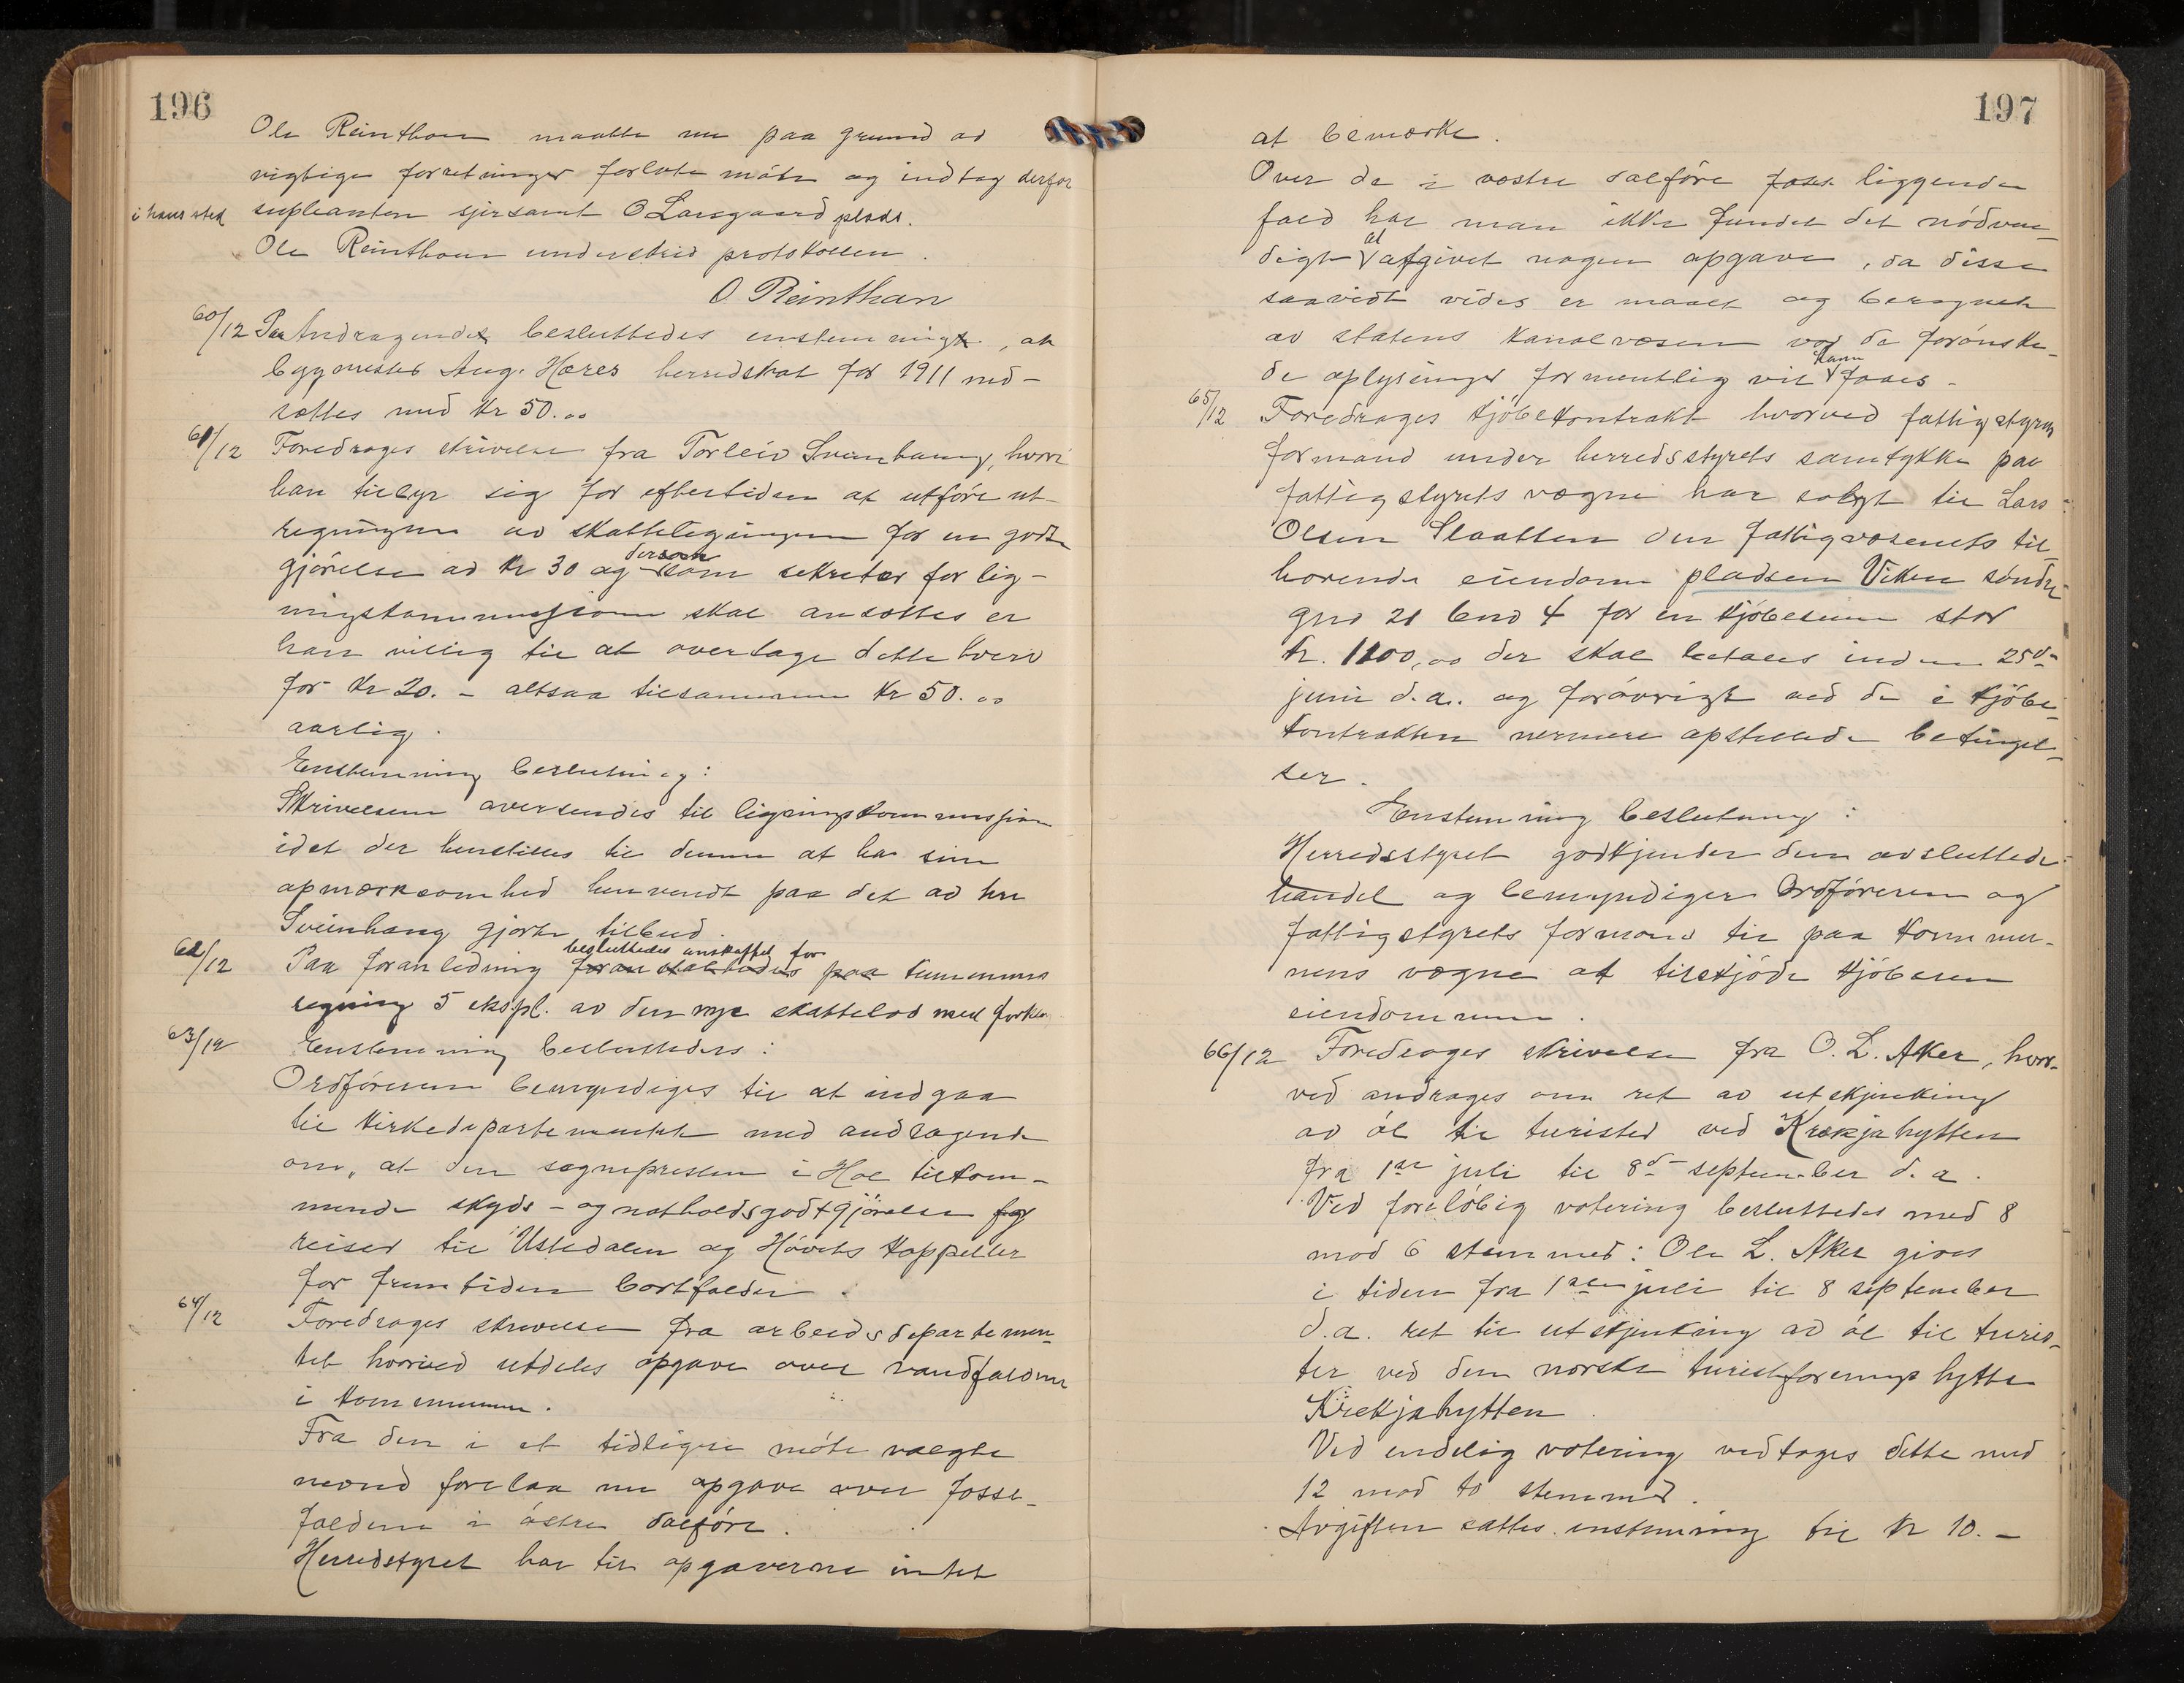 196
Ole Reinthon maatte nu paa grund av
vigtige forretninger forlate møte og indtog derfor
i hans sted
supleanten sjersamt O Larsgaard plads.
Ole Reinthon underskrev protokollen.
O. Reinthon
60/12 Paa Andragende besluttedes enstemmigt, at
bygmester Aug. Hæres herredskat for 1911 ned-
sættes med kr 50.00
61/12 Foredroges skrivelse fra Torleiv Sveinhaug, hvori
han tilbyr sig for eftertiden at utføre ut-
regningen av skatteligningen for en godt-
gjørelse av kr 30 og dersom som sekretær for lig-
ningskommissionen skal ansættes er
han villig til at overtage dette hverv
for kr 20. - altsaa tilsammen kr 50.00
aarlig.
Enstemmig beslutning:
Skrivelsen oversendes til ligningskommissionen
idet der henstilles til denne at ha sin
opmærksomhed henvendt paa det av hr
Sveinhaug gjorte tilbud.
62/12 Paa foranledning besluttedes anskaffet for kommunens
regning 5 ekspl. av den nye skattelov med forkla
63/12 Enstemmig besluttedes:
Ordføreren bemyndiges til at indgaa
til kirkedepartementet med andragende
om, at den sognepresten i Hol tilkom-
mende skyds- og natholdsgodtgjørelse for
reiser til Ustedalen og Hovets kappeller
for fremtiden bortfalder.
64/12 Foredroges skrivelse fra arbeidsdepartemen-
tet hvorved utdeles opgave over vandfaldene
i kommunen.
Fra den i et tidligere møte valgte
nævnd forelaa nu opgave over fosse-
faldene i østre dalføre.
Herredstyret har til opgaverne intet
197
at bemærke.
Over de i vestre dalføre liggende
fald har man ikke fundet det nødven-
digt at afgivet nogen opgave, da disse
saavidt vides er maalt og beregnet
av statens kanalvæsen vor de forønske-
de oplysinger formentlig vil kunn faaes.
65/12 Foredroges kjøbekontrakt hvorved fattigstyrets
formand under herredsstyrets samtykke paa
fattigstyrets vægne har solgt til Lars
Olsen Slaatten den fattigvæsenets til-
hørende eiendom pladsen Viken søndre
gno 21 bno 4 for en kjøbesum stor
kr. 1100,00 der skal betales inden 25de
juni d.a. og forøvrigt ved de i kjøbe-
kontrakten nermere opstillede betingel-
ser.
Enstemmig beslutning:
Herredsstyret godkjender den avsluttede
handel og bemyndiger Ordføreren og
fattigstyrets formand til paa kommu-
nens vægne at tilskjøde kjøberen
eiendommen.
66/12 Foredroges skrivelse fra O. L. Aker, hvor-
ved andrages om ret av utskjenking
av øl til turister ved Krækjahytten
fra 1ste juli til 8de september d. a.
Ved foreløbig votering besluttedes med 8
mod 6 stemmer: Ole L. Aker gives
i tiden fra 1ste juli til 8 september
d.a. ret til utskjenking av øl til turis-
ter ved den norske turistforenings hytte
Krækjahytten.
Ved endelig votering vedtoges dette med
12 mod to stemmer.
Avgiften sattes enstemmig til kr 10. -